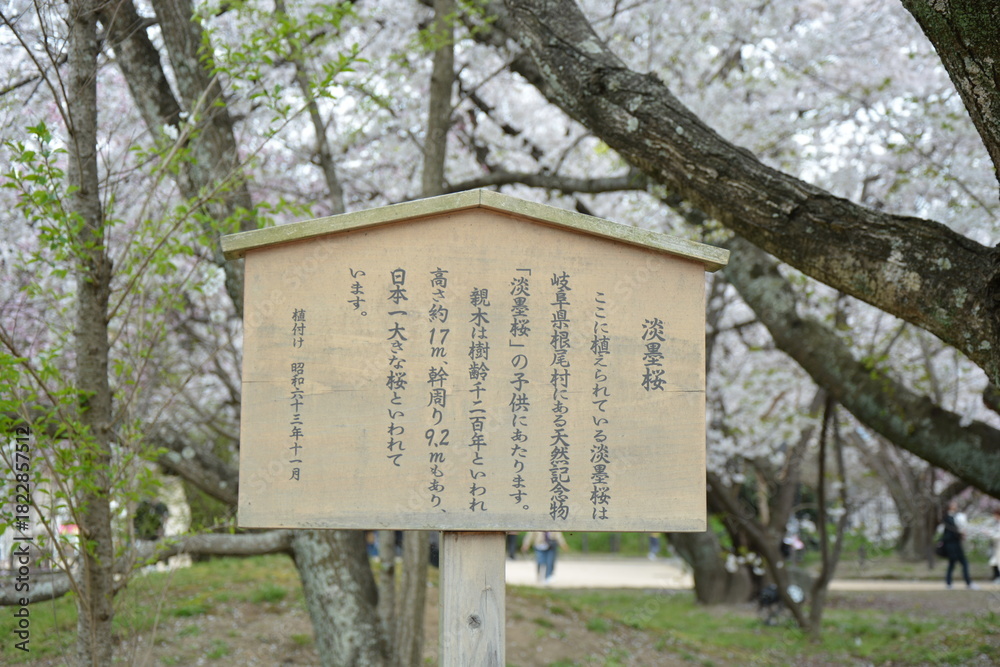 淡墨桜
ここに植えられている淡墨桜は
岐阜県根尾村にある天然記念物
「淡墨桜」の子供にあたります。
親木は樹齢千二百年といわれ
高さ約17m、幹周り9.2mもあり、
日本一大きな桜といわれて
います。
植付け 昭和六十三年十一月
Adobe Stock | #1822857512